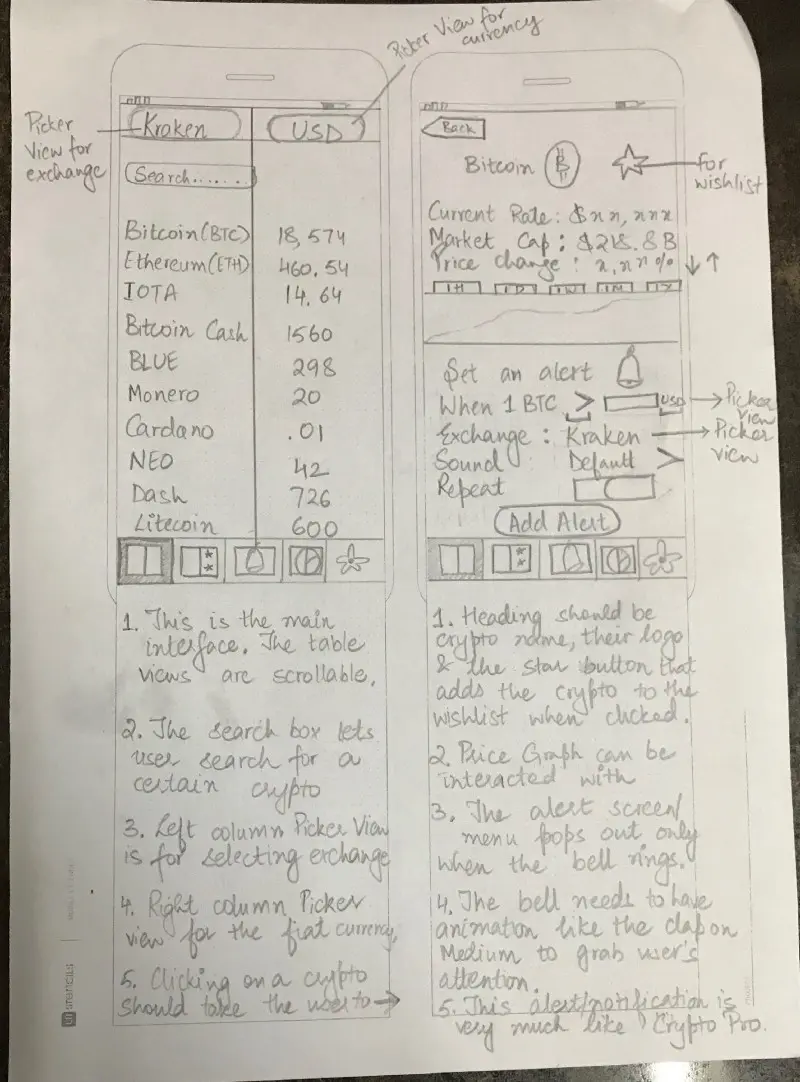 Picker View for
currency
Picker
View for
exchange
Kraken
USD
Search.......
Bitcoin(BTC) 18,574
Ethereum(ETH) 460.54
IOTA 14.64
Bitcoin Cash 1560
BLUE 298
Monero 20
Cardano .01
NEO 42
Dash 726
Litecoin 600
1. This is the main
interface. The table
views are scrollable.
2. The search box lets
user search for a
certain crypto
3. Left column Picker View
is for selecting exchange
4. Right column Picker
view for the fiat currency.
5. Clicking on a crypto
should take the user to →
Back
Bitcoin
for
wishlist
Current Rate: $xx,xxx
Market Cap: $218.8B
Price change: x.xx% ↓↑
1H 1D 1W 1M 1Y
Set an alert
When 1 BTC > USD
Picker
View
Exchange: Kraken
Picker
view
Sound Default >
Repeat
Add Alert
1. Heading should be
crypto name, their logo
& the star button that
adds the crypto to the
wishlist when clicked.
2. Price Graph can be
interacted with
3. The alert screen/
menu pops out only
when the bell rings.
4. The bell needs to have
animation like the clap on
Medium to grab user's
attention.
5. This alert/notification is
very much like Crypto Pro.